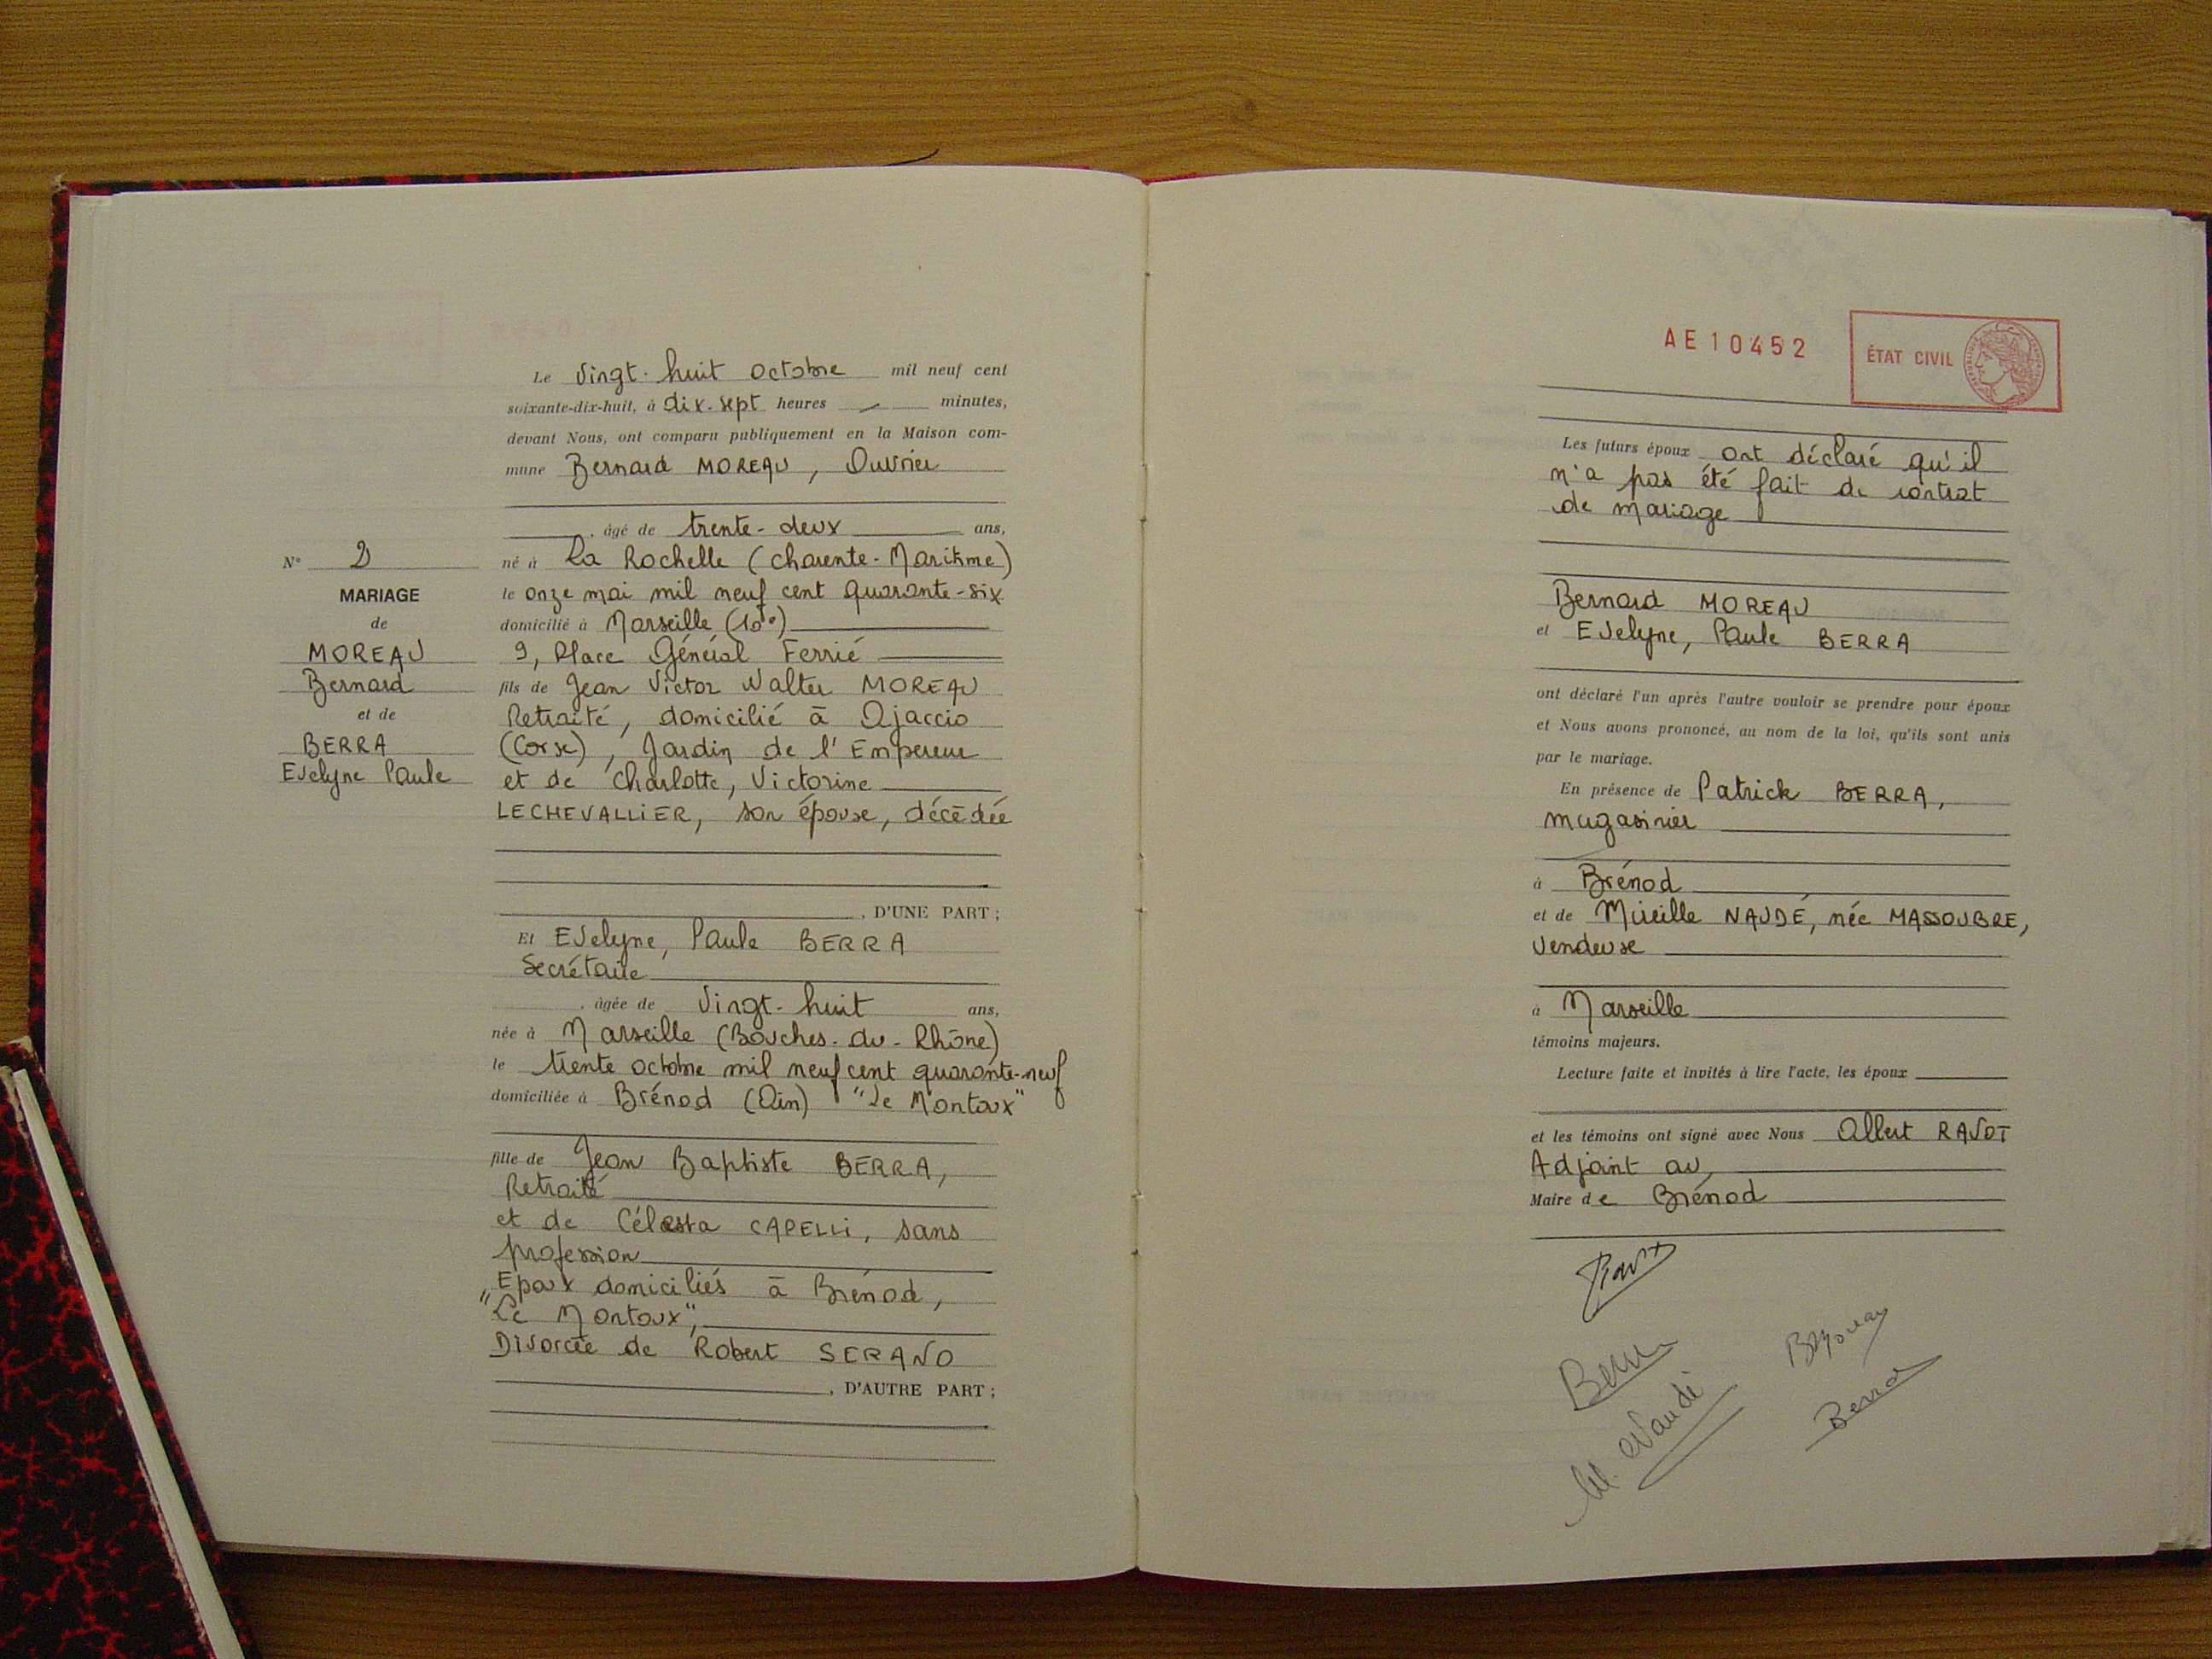 Le Vingt-huit octobre mil neuf cent
soixante-dix-huit, à dix-sept heures — minutes,
devant Nous, ont comparu publiquement en la Maison com-
mune Bernard MOREAU, Ouvrier
, âgé de trente-deux ans,
né à La Rochelle (Charente-Maritime)
le onze mai mil neuf cent quarante-six
domicilié à Marseille (10°)
9, Place Général Ferrié
fils de Jean Victor Walter MOREAU
Retraité, domicilié à Ajaccio
(Corse), Jardin de l'Empereur
et de Charlotte, Victorine
LECHEVALLIER, son épouse, décédée
, D'UNE PART ;
N° 2
MARIAGE
de
MOREAU
Bernard
et de
BERRA
Evelyne Paule
Et Evelyne, Paule BERRA
Secrétaire
, âgée de Vingt-huit ans,
née à Marseille (Bouches-du-Rhône)
le trente octobre mil neuf cent quarante-neuf
domiciliée à Brénod (Ain) "Le Montoux"
fille de Jean Baptiste BERRA,
Retraité
et de Célesta CAPELLI, sans
profession
Epoux domiciliés à Brénod,
"Le Montoux",
Divorcée de Robert SERANO
, D'AUTRE PART ;
AE10452
ÉTAT CIVIL
Les futurs époux ont déclaré qu'il
n'a pas été fait de contrat
de mariage
Bernard MOREAU
et Evelyne, Paule BERRA
ont déclaré l'un après l'autre vouloir se prendre pour époux
et Nous avons prononcé, au nom de la loi, qu'ils sont unis
par le mariage.
En présence de Patrick BERRA,
magasinier
à Brénod
et de Mireille NAUDÉ, née MASSOUBRE,
Vendeuse
à Marseille
témoins majeurs.
Lecture faite et invités à lire l'acte, les époux
et les témoins ont signé avec Nous Albert RAVOT
Adjoint au
Maire de Brénod
Berra
M. Naudé